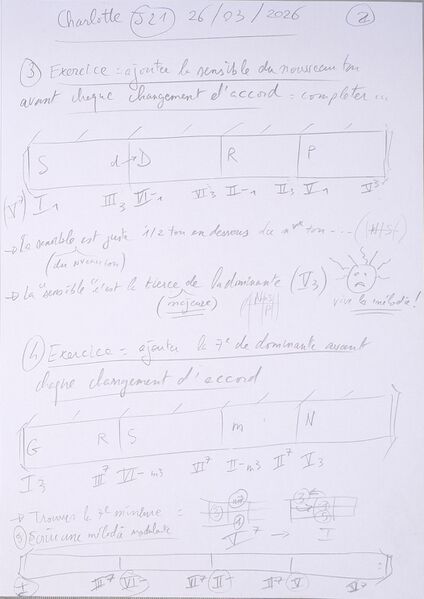 Charlotte S21 26/03/2026 2
③ Exercice : ajouter la sensible du nouveau ton
avant chaque changement d'accord : compléter ...
S d→D R P
(V⁷) I 1 III 3 VI-1 VI 3 II-1 II 3 V 1 V 3
→ La sensible est juste 1/2 ton en dessous du ton ...
(du nouveau)
→ La "sensible" c'est la tierce de la dominante (V3)
(majeure) vive la mélodie!
④ Exercice : ajouter la 7e de dominante avant
chaque changement d'accord
G R S m N
I 3 III⁷ VI-m3 VI⁷ II-m3 II⁷ V 3
→ Trouver la 3ce mineure =
V⁷ → I
⑤ Écrire une mélodie modulante
I III⁷ VI- VI⁷ II- II⁷ V V⁷